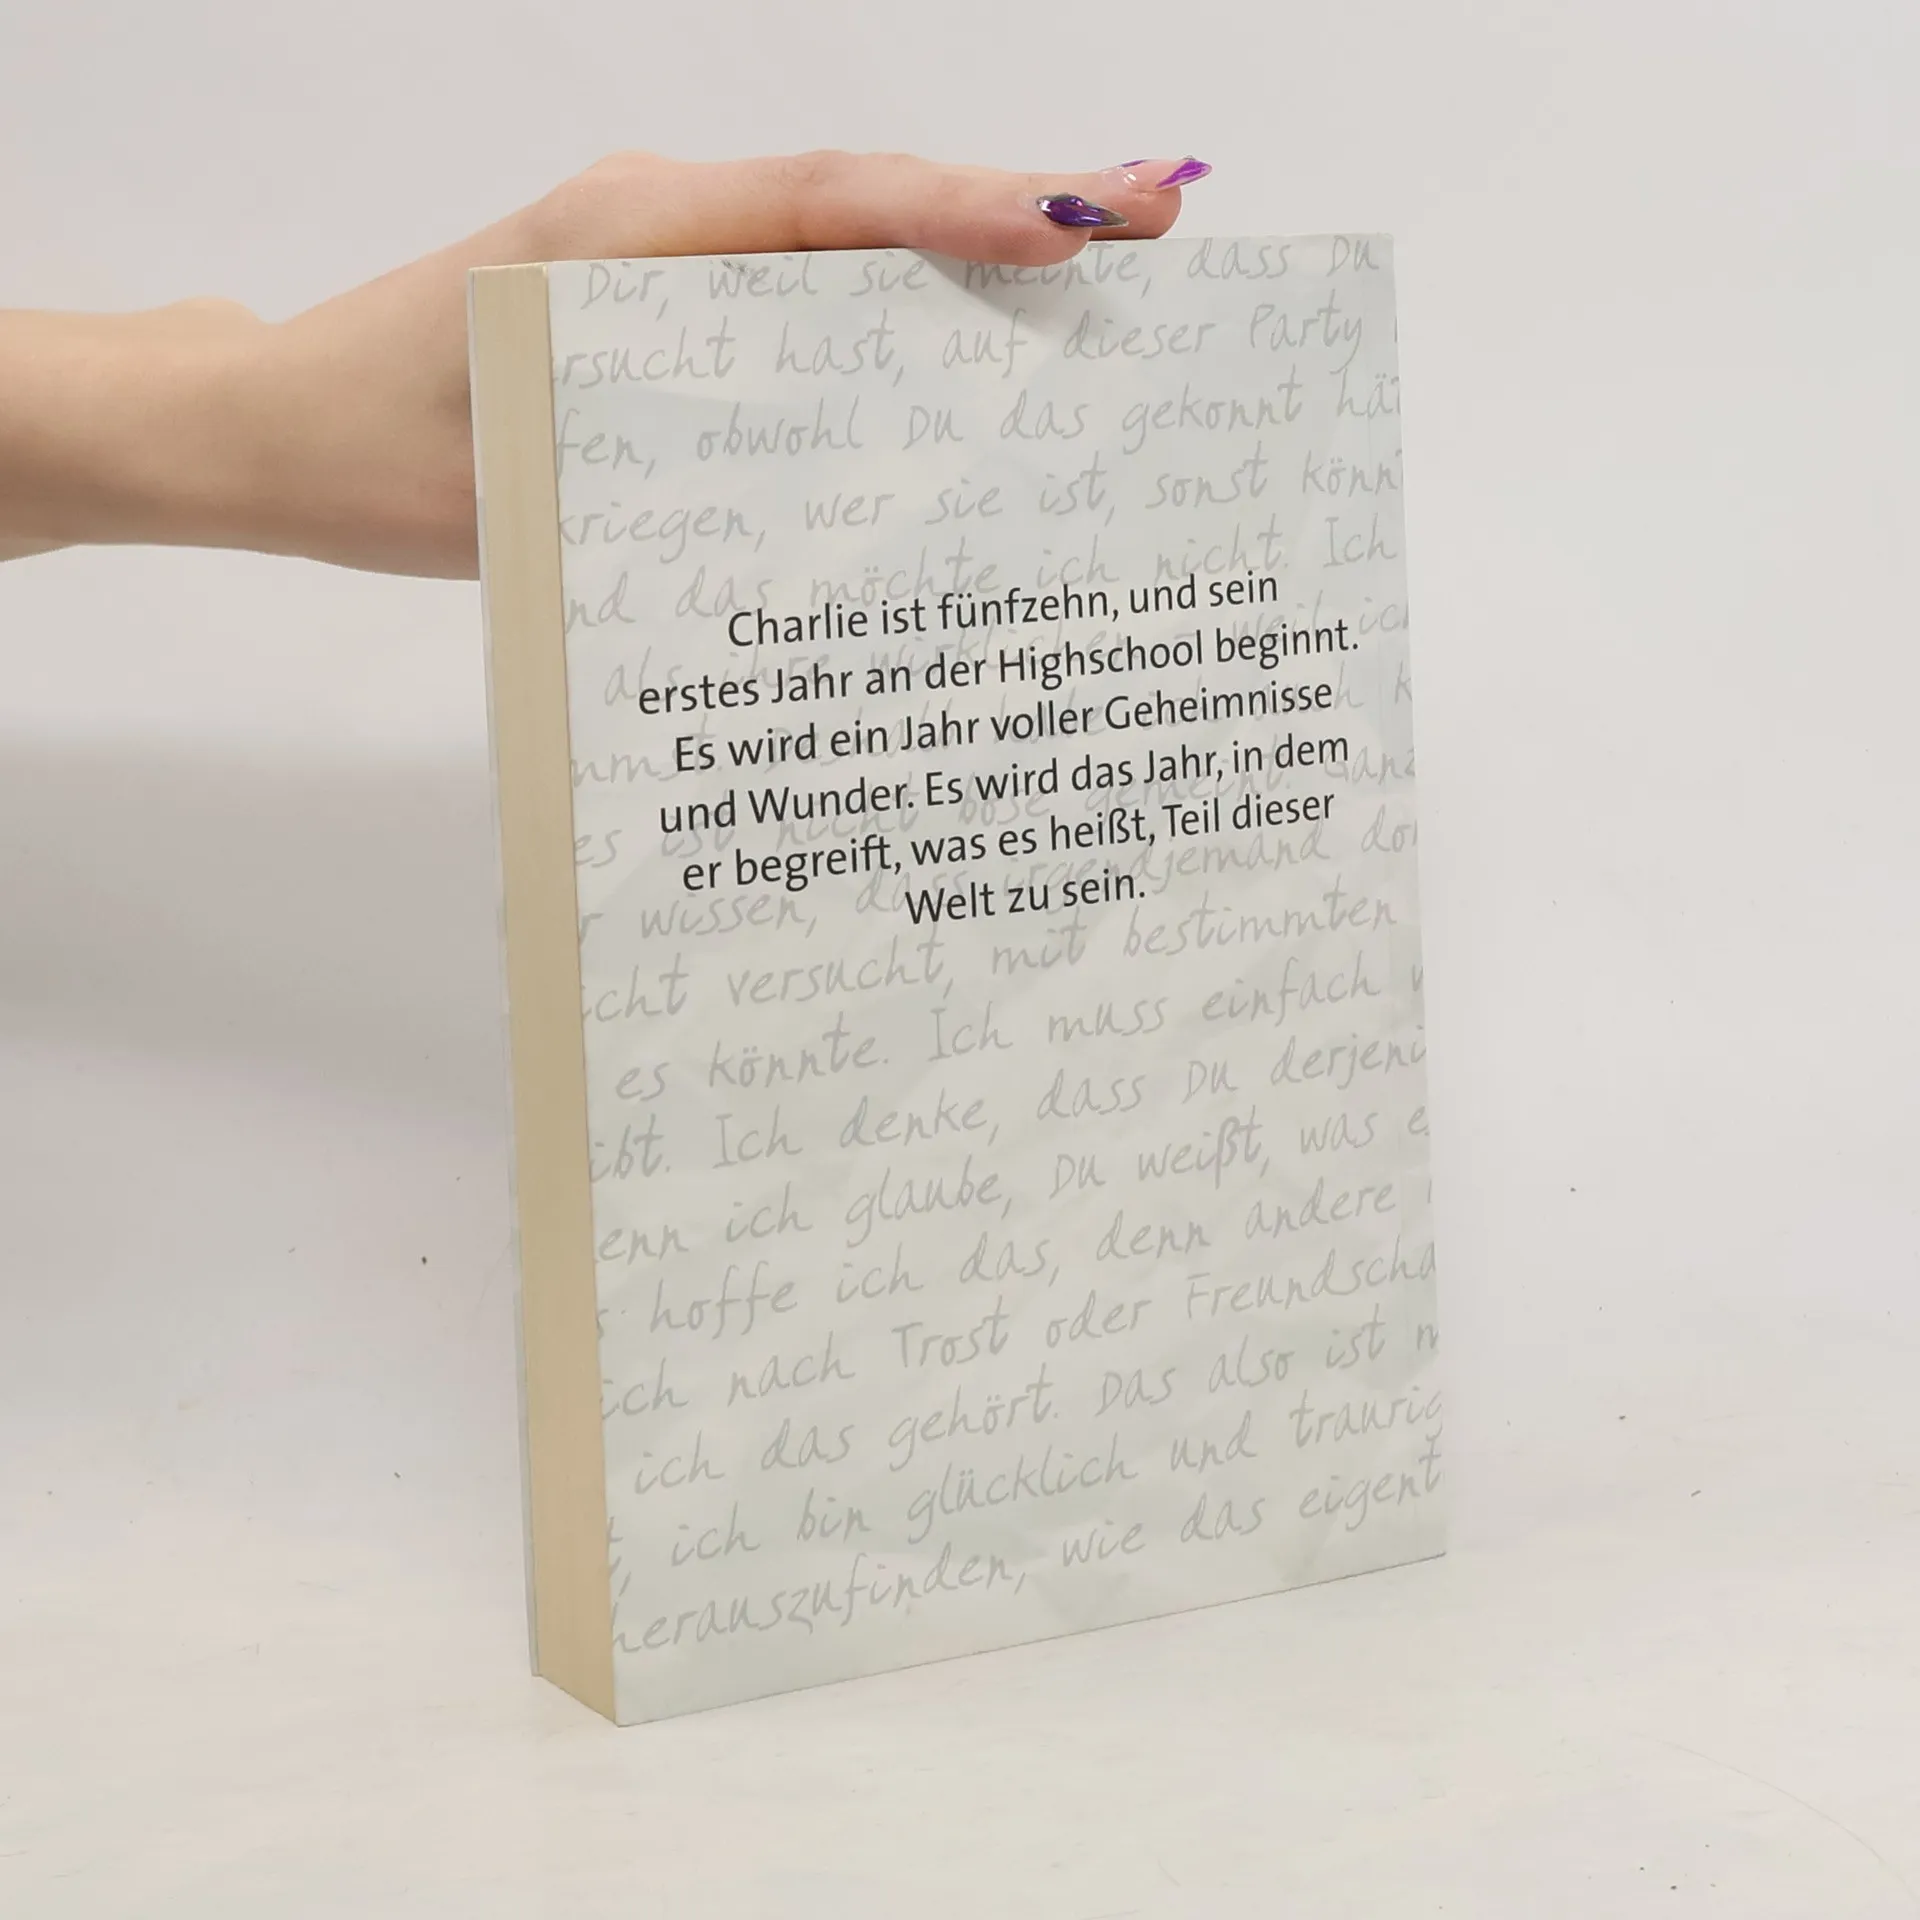 Dir, weil sie meinte, dass Du
rsucht hast, auf dieser Party
fen, obwohl Du das gekonnt hä
kriegen, wer sie ist, sonst könn
nd das möchte ich nicht. Ich
Charlie ist fünfzehn, und sein
erstes Jahr an der Highschool beginnt.
Es wird ein Jahr voller Geheimnisse
und Wunder. Es wird das Jahr, in dem
er begreift, was es heißt, Teil dieser
Welt zu sein.
als ihre wirklichen weil ich
es ist nicht böse gemeint. Ganz
wissen, dass irgendjemand do
icht versucht, mit bestimmten
es könnte. Ich muss einfach
ibt. Ich denke, dass Du derjeni
enn ich glaube, Du weißt, was e
hoffe ich das, denn andere
ich nach Trost oder Freundscha
ich das gehört. Das also ist m
t, ich bin glücklich und traurig
herauszufinden, wie das eigent